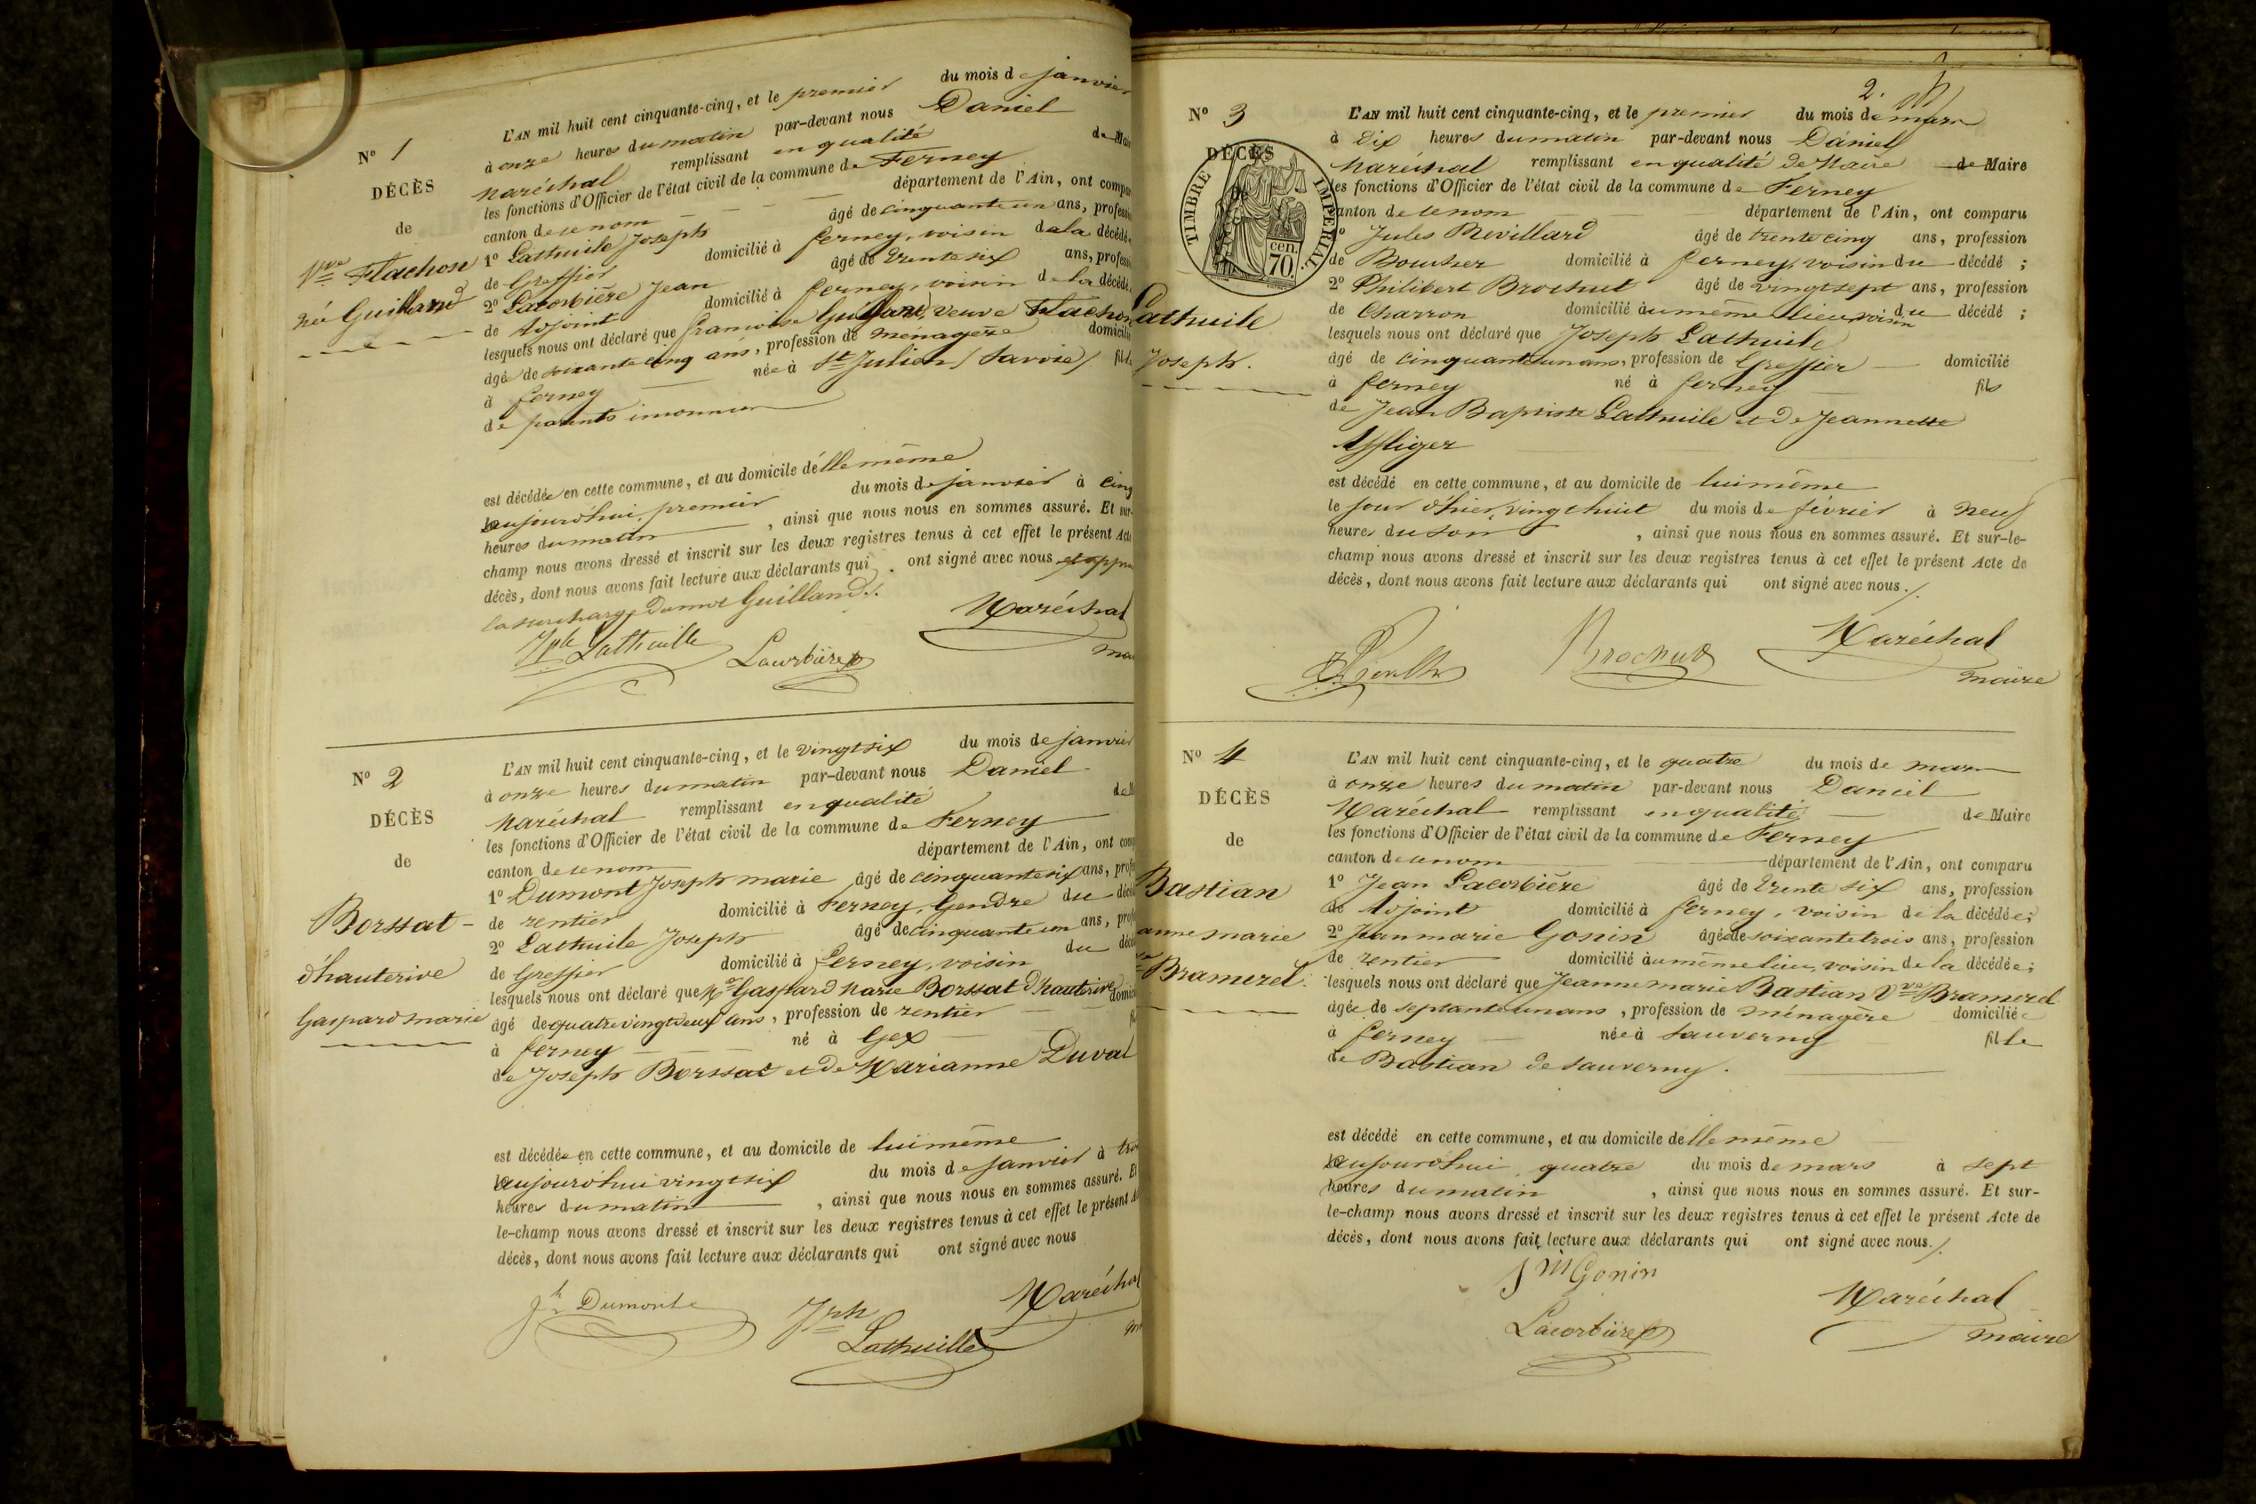 N° 1
DÉCÈS
de
Vve Flachon
née Guilland
L'AN mil huit cent cinquante-cinq, et le premier du mois de janvier
à onze heures du matin par-devant nous Daniel
Maréchal remplissant en qualité de Mai
les fonctions d'Officier de l'état civil de la commune de Ferney
canton de ce nom département de l'Ain, ont compa
1° Lathuile Joseph âgé de cinquante un ans, profess
de Greffier domicilié à ferney, voisin de la décédée
2° Lacorbière Jean âgé de trente six ans, profess
de Adjoint domicilié à ferney, voisin de la décédée
lesquels nous ont déclaré que françoise Guilland, veuve Flachon
âgé de soixante cinq ans, profession de ménagère domicilié
à ferney née à St Julien (Savoie) fil
de parents inconnus
est décédée en cette commune, et au domicile d'elle même
aujourd'hui premier du mois de janvier à cinq
heures du matin, ainsi que nous nous en sommes assuré. Et sur-
champ nous avons dressé et inscrit sur les deux registres tenus à cet effet le présent Acte
décès, dont nous avons fait lecture aux déclarants qui ont signé avec nous et appr
la surcharge du mot Guilland.
Jph Lathuille Lacorbière Maréchal
N° 2
DÉCÈS
de
Borssat-
d'hauterive
Gaspard marie
L'AN mil huit cent cinquante-cinq, et le vingt six du mois de janvier
à onze heures du matin par-devant nous Daniel
Maréchal remplissant en qualité de
les fonctions d'Officier de l'état civil de la commune de Ferney
canton de ce nom département de l'Ain, ont com
1° Dumont Joseph marie âgé de cinquante six ans, profe
de rentier domicilié à Ferney, Gendre du décé
2° Lathuile Joseph âgé de cinquante un ans, prof
de Greffier domicilié à ferney, voisin du décé
lesquels nous ont déclaré que Gaspard Marie Borssat d'hauterive domici
âgé de quatre vingt deux ans, profession de rentier
à ferney né à Gex
de Joseph Borssat et de Marianne Duval
est décédé en cette commune, et au domicile de lui même
aujourd'hui vingt six du mois de janvier à tro
heures du matin, ainsi que nous nous en sommes assuré. Et
le-champ nous avons dressé et inscrit sur les deux registres tenus à cet effet le présent A
décès, dont nous avons fait lecture aux déclarants qui ont signé avec nous
Jh Dumont Jph Lathuille Maréchal
2.
N° 3
DÉCÈS
TIMBRE IMPÉRIAL
cen. 70.
Lathuile
Joseph.
L'AN mil huit cent cinquante-cinq, et le premier du mois de mars
à dix heures du matin par-devant nous Daniel
Maréchal remplissant en qualité de Maire de Maire
les fonctions d'Officier de l'état civil de la commune de Ferney
canton de ce nom département de l'Ain, ont comparu
1° Jules Revillard âgé de trente cinq ans, profession
de Boucher domicilié à ferney, voisin du décédé ;
2° Philibert Brochut âgé de vingt sept ans, profession
de Charron domicilié au même lieu, voisin du décédé ;
lesquels nous ont déclaré que Joseph Lathuile
âgé de cinquante un ans, profession de Greffier domicilié
à ferney né à ferney fils
de Jean Baptiste Lathuile et de Jeannette
Affliger
est décédé en cette commune, et au domicile de lui même
le jour d'hier, vingt huit du mois de février à neuf
heures du soir, ainsi que nous nous en sommes assuré. Et sur-le-
champ nous avons dressé et inscrit sur les deux registres tenus à cet effet le présent Acte de
décès, dont nous avons fait lecture aux déclarants qui ont signé avec nous.
Brochut Maréchal
maire
N° 4
DÉCÈS
de
Bastian
anne marie
Bramerel.
L'AN mil huit cent cinquante-cinq, et le quatre du mois de mars
à onze heures du matin par-devant nous Daniel
Maréchal remplissant en qualité de Maire
les fonctions d'Officier de l'état civil de la commune de Ferney
canton de ce nom département de l'Ain, ont comparu
1° Jean Lacorbière âgé de trente six ans, profession
de Adjoint domicilié à ferney, voisin de la décédée ;
2° Jean marie Gonin âgé de soixante trois ans, profession
de rentier domicilié au même lieu, voisin de la décédée ;
lesquels nous ont déclaré que Jeanne marie Bastian Vve Bramerel
âgée de septante un ans, profession de ménagère domiciliée
à ferney née à Sauverny fille
de Bastian de Sauverny.
est décédé en cette commune, et au domicile d'elle même
aujourd'hui quatre du mois de mars à sept
heures du matin, ainsi que nous nous en sommes assuré. Et sur-
le-champ nous avons dressé et inscrit sur les deux registres tenus à cet effet le présent Acte de
décès, dont nous avons fait lecture aux déclarants qui ont signé avec nous.
J M Gonin
Lacorbière Maréchal
maire